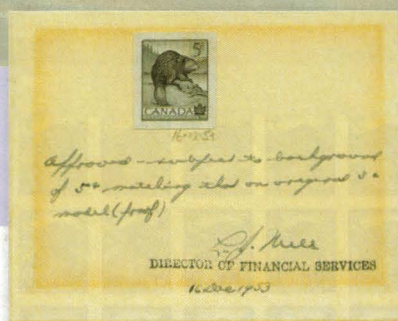 5¢
CANADA
Approved - subject to background
of 5¢ matching that on original 5¢
model (proof)
DIRECTOR OF FINANCIAL SERVICES
16 Dec 1953